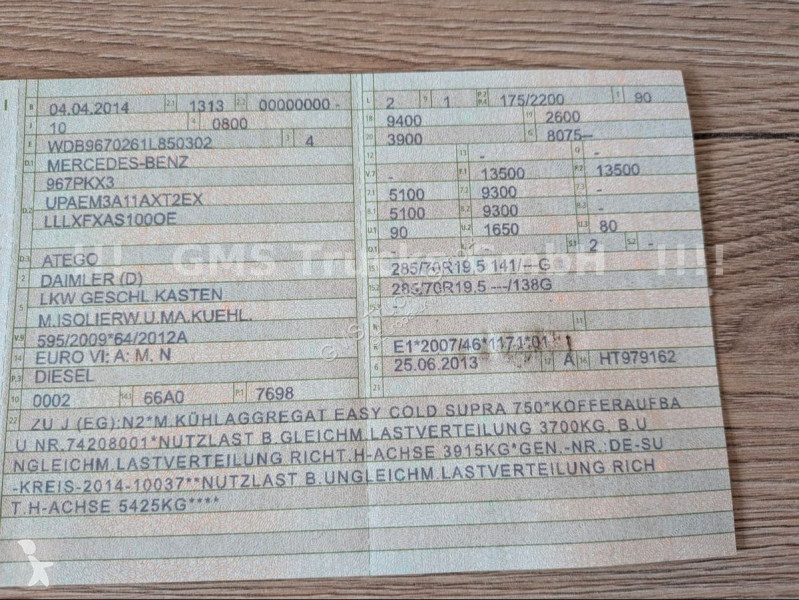 B 04.04.2014 2.1 1313 2.2 00000000 -
J 10 4 0800
E WDB9670261L850302 3 4
D.1 MERCEDES-BENZ
967PKX3
D.2 UPAEM3A11AXT2EX
LLLXFXAS100OE
D.3 ATEGO
2 DAIMLER (D)
5 LKW GESCHL.KASTEN
M.ISOLIERW.U.MA.KUEHL.
V.9 595/2009*64/2012A
14 EURO VI; A; M, N
P.3 DIESEL
10 0002 14.1 66A0 P.1 7698
L 2 9 1 P.2 P.4 175/2200 T 90
18 9400 19 2600
20 3900 G 8075--
12 - 13 - Q -
V.7 - F.1 13500 F.2 13500
7.1 5100 7.2 9300 7.3 -
8.1 5100 8.2 9300 8.3 -
U.1 90 U.2 1650 U.3 80
O.1 - S.1 2 S.2 -
15.1 285/70R19,5 141/---G
15.2 285/70R19,5 ---/138G
R 11
K E1*2007/46*1171*01*
6 25.06.2013 17 A 16 HT979162
21
22 ZU J (EG):N2*M.KÜHLAGGREGAT EASY COLD SUPRA 750*KOFFERAUFBA
U NR.74208001*NUTZLAST B.GLEICHM.LASTVERTEILUNG 3700KG, B.U
NGLEICHM.LASTVERTEILUNG RICHT.H-ACHSE 3915KG*GEN.-NR.:DE-SU
-KREIS-2014-10037**NUTZLAST B.UNGLEICHM.LASTVERTEILUNG RICH
T.H-ACHSE 5425KG****
!!! GMS Trucks GmbH !!!!